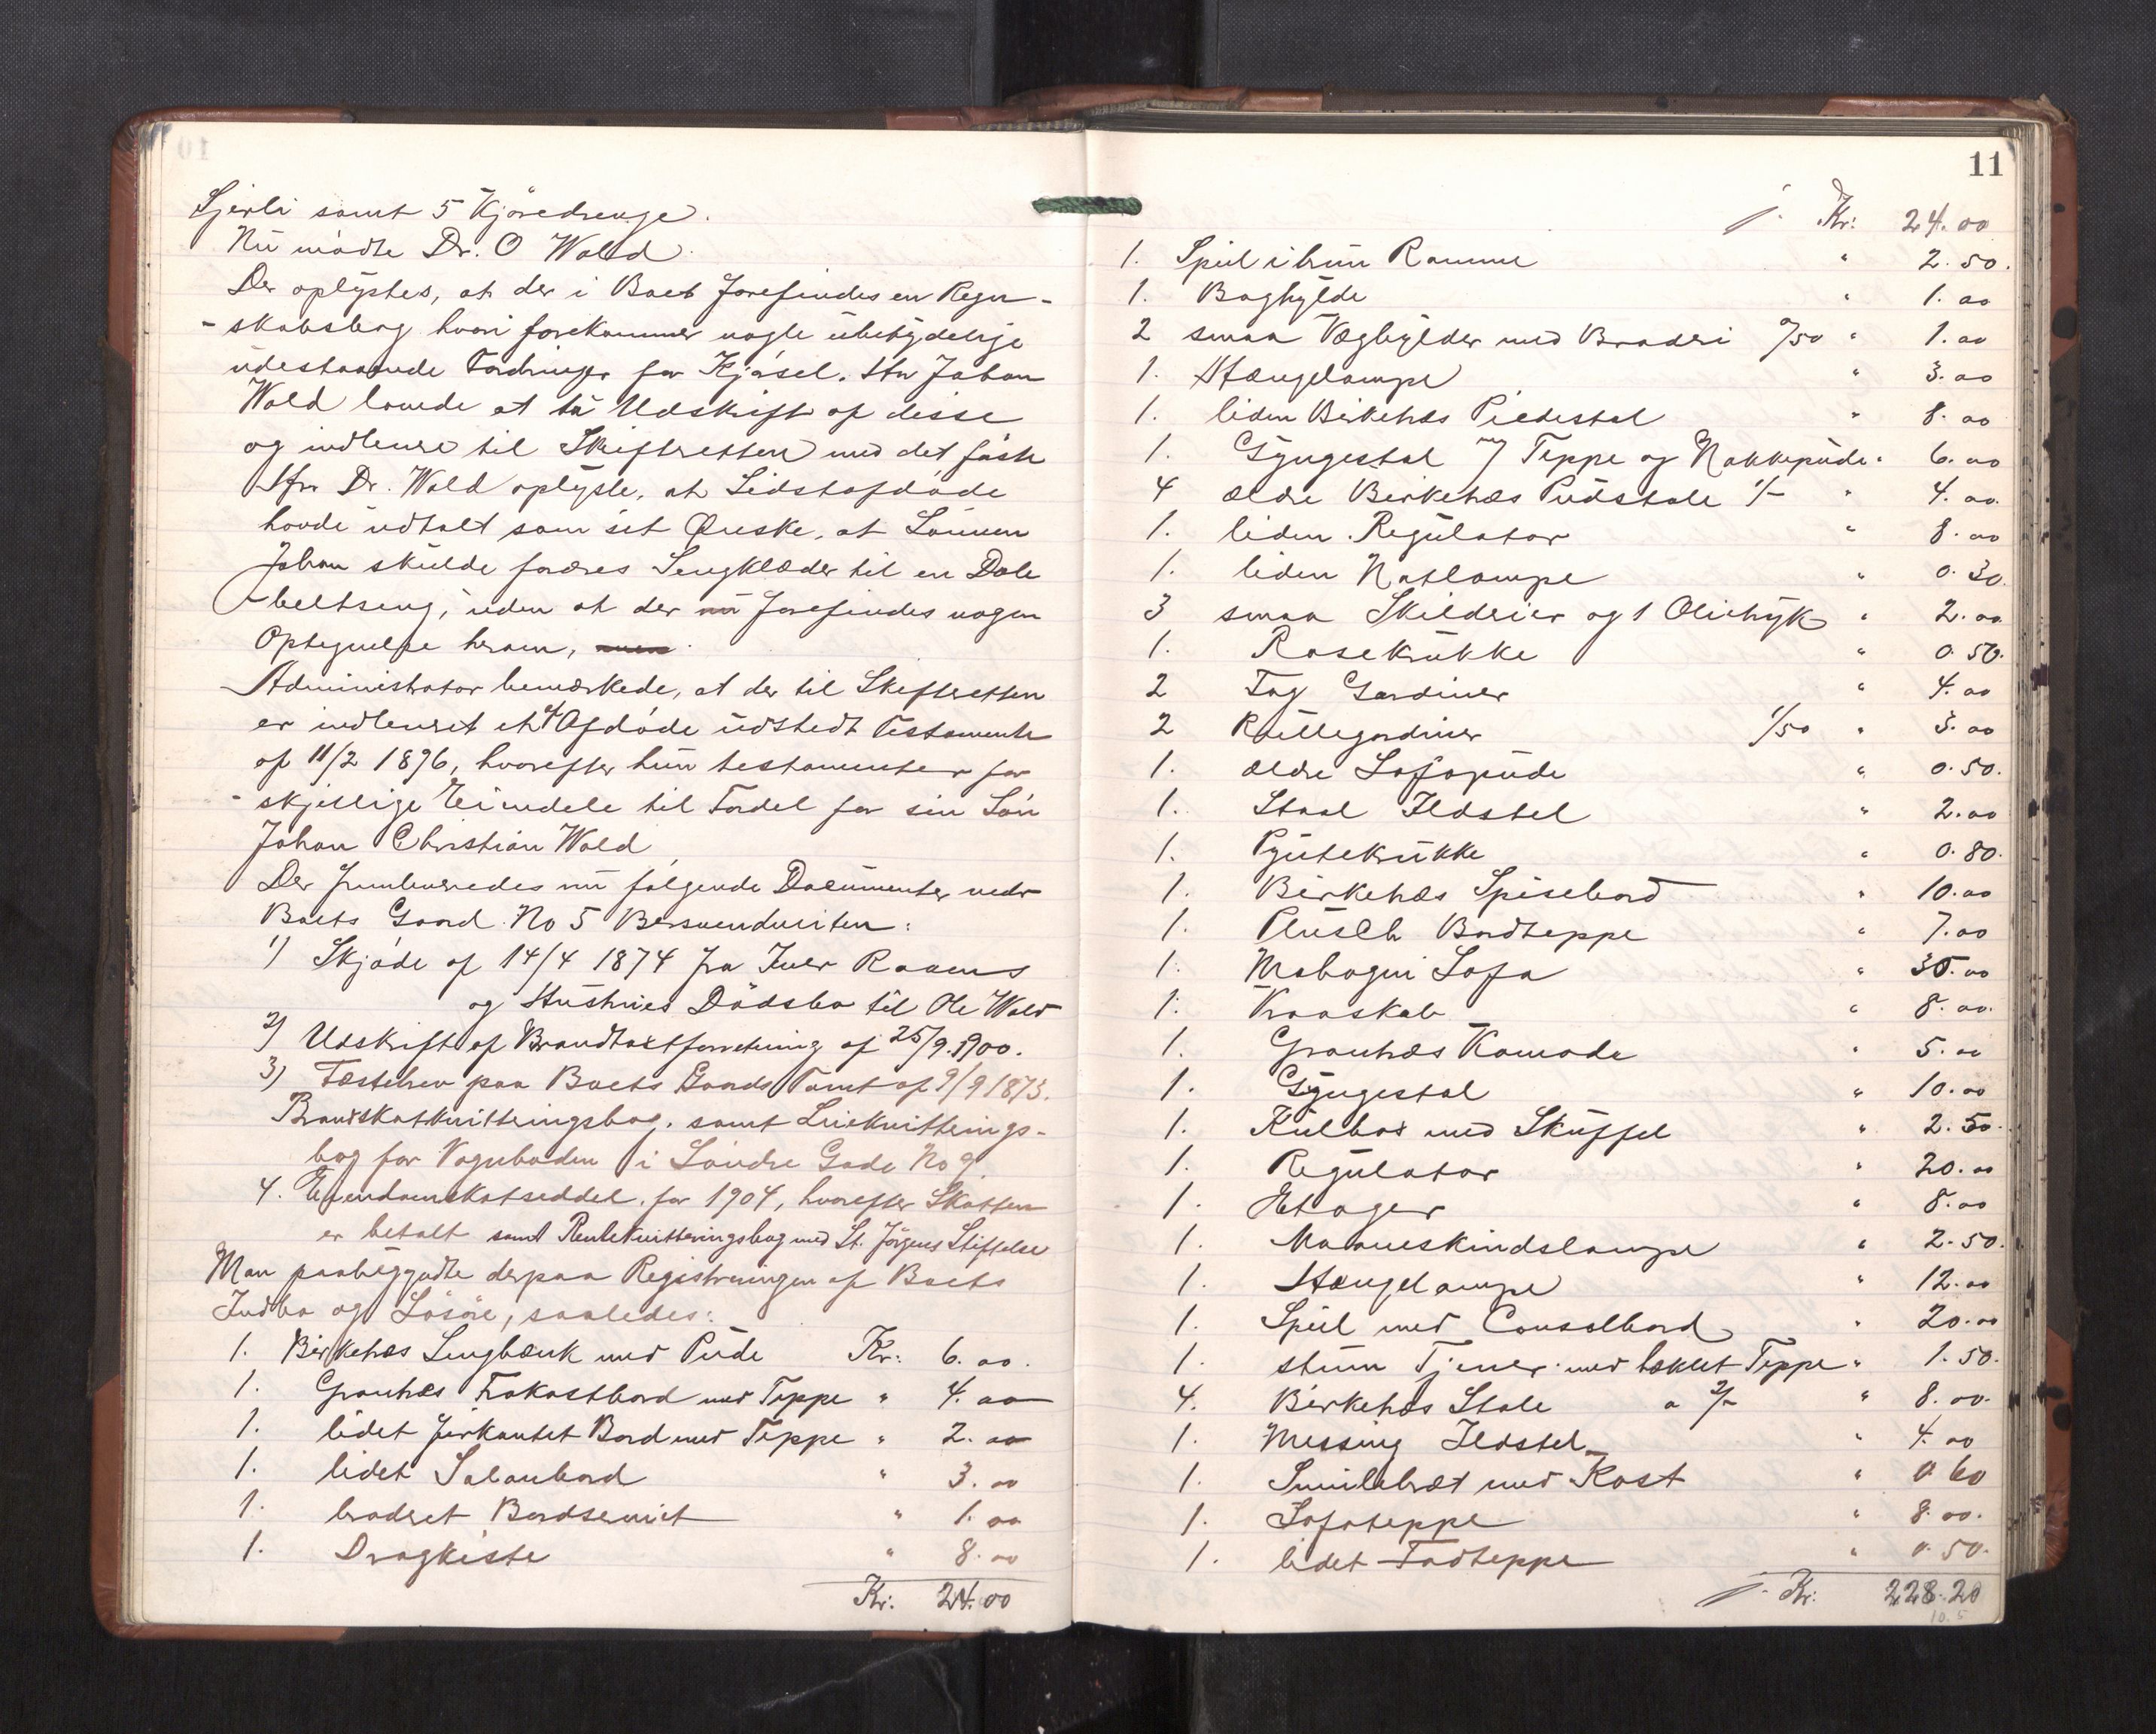 Sjerli samt 5 Kjöredrenge.
Nu mödte Dr. O Wold.
Der oplystes, at der i Boet forefindes en Regn-
-skabsbog hvori forekommer nogle ubetydelige
udestaaende Fordringer for Kjörsel. Hr Johan
Wold lovede at ta Udskrift af disse
og indlevere til Skifteretten med det förste
Hr. Dr. Wold oplyste, at Sidstafdöde
havde udtalt som sit Önske, at Sönnen
Johan skulde foræres Sengklæder til en Dob-
-beltseng, uden at der nu forefindes nogen
Optegnelse herom,
Administrator bemærkede, at der til Skifteretten
er indleveret et af Afdöde udstedt Testamente
af 11/2 1896, hvorefter hun testamenterer for
-skjellige Eiendele til Fordel for sin Sön
Johan Christian Wold
Der fremleveredes nu fölgende Documenter vedr
Boets Gaard No 5 Bersvendveiten:
1) Skjöde af 14/4 1874 fra Iver Raaens
og Hustrues Dödsbo til Ole Wold
2) Udskrift af Brandtaxtforretning af 25/9 1900.
3) Fæstebrev paa Boets Gaards Tomt af 9/9 1873.
Brandskatkvitteringsbog. samt Leiekvitterings-
bog for Vognboden i Söndre Gade No 9
4. Eiendomskatseddel for 1904, hvorefter Skatten
er betalt samt Rentekvitteringsbog med St. Jörgens Stiftelse
Man paabegyndte derpaa Registreringen af Boets
Indbo og Lösöre, saaledes:
1. Birketræs Sengbænk med Pude Kr: 6.00.
1. Grantræs Frokostbord med Teppe " 4.00
1. lidet firkantet Bord med Teppe " 2.00
1. lidet Salonbord " 3.00
1. broderet Bordserviet " 1.00
1. Dragkiste " 8.00
Kr: 24.00
11
Kr: 24.00
1. Speil i brun Ramme " 2.50.
1. Boghylde " 1.00
2 smaa Væghylder med Broderi 0/50 " 1.00
1. Hængelampe " 3.00
1. liden Birketræs Piedestal " 8.00
1. Gyngestol m/ Teppe og Nakkepude " 6.00
4 ældre Birketræs Pudstole 1/- " 4.00
1. liden Regulator " 8.00
1. liden Natlampe " 0.30.
3 smaa Skilderier og 1 Olietryk " 2.00
1. Rosekrukke " 0.50.
2 Fag Gardiner " 4.00
2 Rullegardiner 1/50 " 3.00
1. ældre Sofapude " 0.50.
1. Staal Ildstel " 2.00
1. Pyntekrukke " 0.80.
1. Birketræs Spisebord " 10.00
1. Plüsch Bordteppe " 7.00
1. Mahogni Sofa " 30.00
1. Kroaskab " 8.00.
1. Grantræs Komode " 5.00
1. Gyngestol " 10.00
1. Kulbox med Skuffel " 2.50.
1. Regulator " 20.00
1. Etager " 8.00
1. Maaneskindslampe " 2.50.
1. Hængelampe " 12.00
1. Speil med Consolbord " 20.00
1. stum Tjener med hæklet Teppe " 1.50.
4. Birketræs Stole a 2/- " 8.00.
1. Messing Ildstel " 4.00
1. Smulebræt med Kost " 0.60
1. Sofateppe " 8.00.
1. lidet Fodteppe " 0.50.
Kr: 228.20